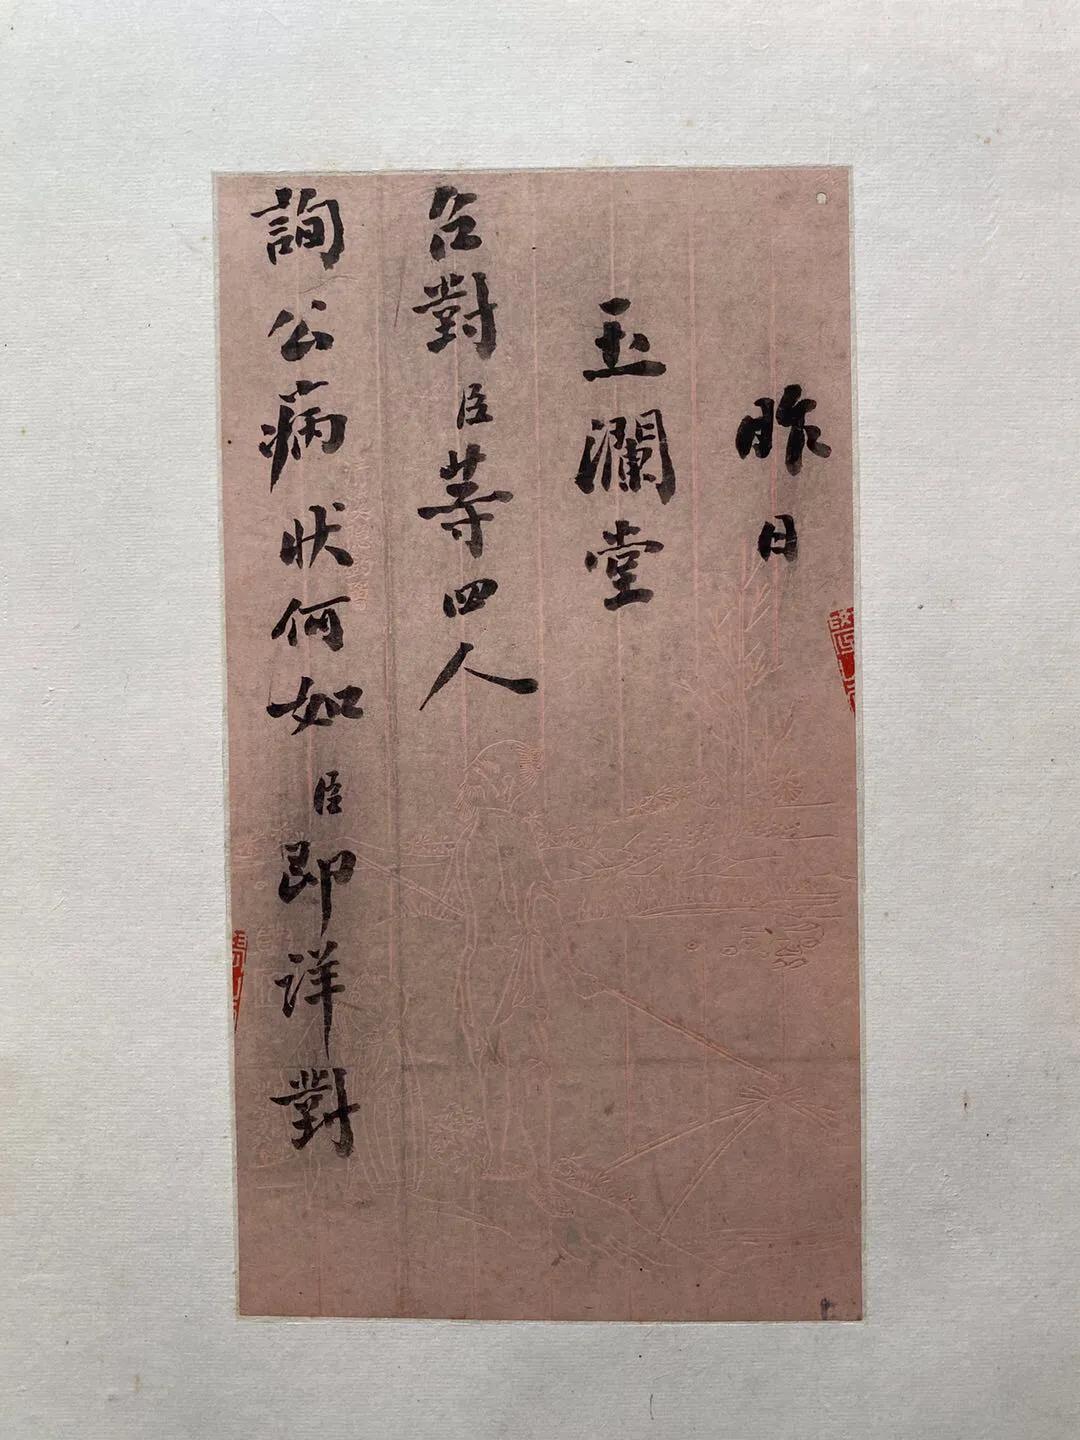 昨日
玉瀾堂
召對臣等四人
詢公病狀何如臣即詳對